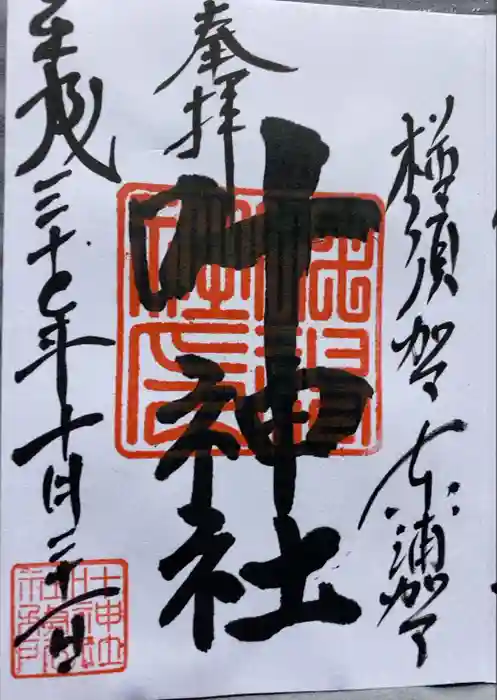 横須賀 東浦賀
奉拝
叶神社
平成三十年十月二十一日